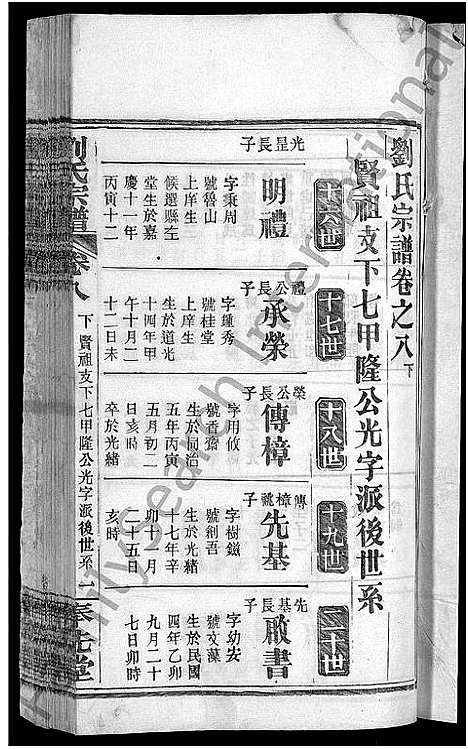 劉氏宗譜卷之八下
賢祖支下七甲隆公光字派後世系
十六世
十七世
十八世
十九世
二十世
光昰長子
明禮
字秉周
號魯山
上庠生
候選縣左
堂生於嘉
慶十一年
丙寅十二
禮公長子
承榮
字鍾秀
號桂堂
上庠生
生於道光
十四年甲
午十月二
十二日未
榮公長子
傳樟
字用攸
號香蓀
生於同治
五年丙寅
五月初二
日亥時
卒於光緒
傳樟祧子
先基
字樹鎡
號創吾
生於光緒
十七年辛
卯十月
二十五日
亥時
先基長子
啟書
字幼安
號文藻
生於民國
四年乙卯
九月二十
七日卯時
劉氏宗譜
卷八
下賢祖支下七甲隆公光字派後世系
一
奉先堂
FamilySearch International